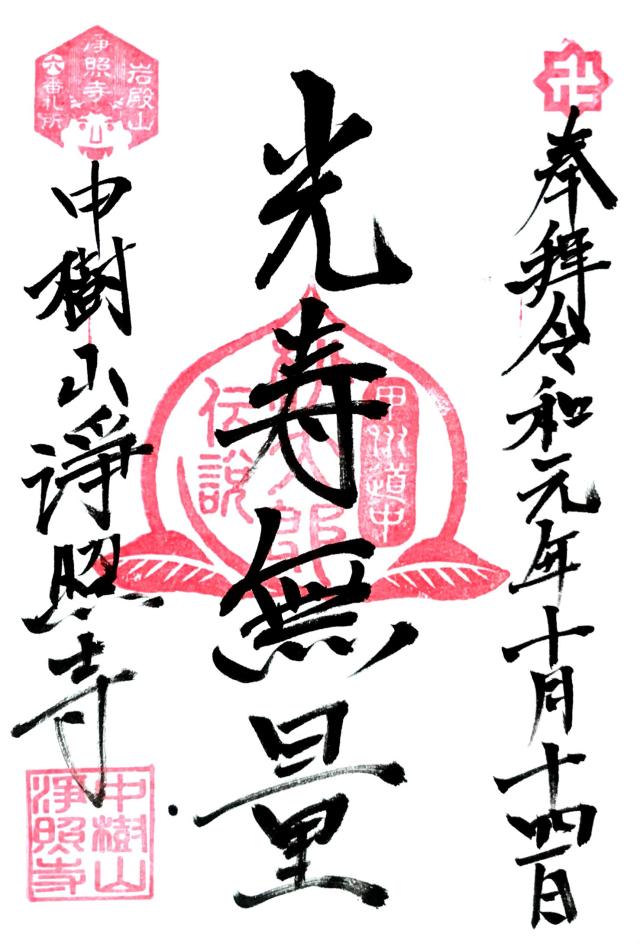 奉拜令和元年十月十四日
光寿無量
甲州道中
桃太郎
伝説
岩殿山
淨照寺
六番札所
中樹山淨照寺
中樹山
淨照寺